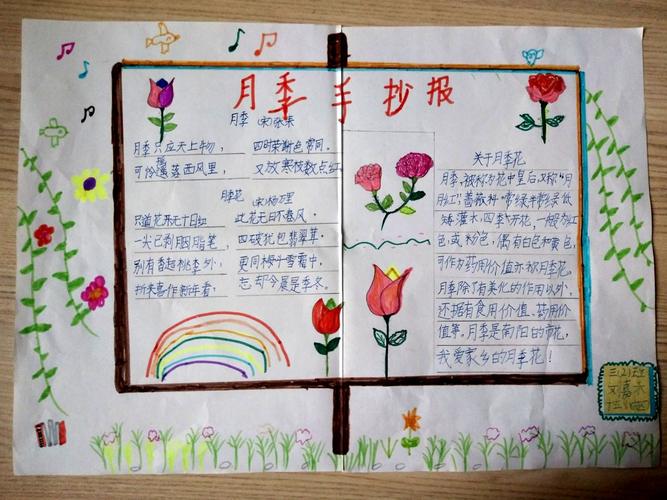 月季手抄报
月季 宋 张耒
月季只应天上物， 四时荣谢色常同。
可怜摇落西风里， 又放寒枝数点红
月季花
宋 杨万里
只道花开无十日红 此花无日不春风。
一尖已剥胭脂笔， 四破犹包翡翠茸。
别有香超桃李外， 更同梅斗雪霜中。
折来喜作新年看， 忘却今晨是季冬。
关于月季花
月季，被称为花中皇后，又称"月
月红"，蔷薇科。常绿半常绿低
矮灌木，四季开花，一般为红
色，或粉色，偶有白色和黄色，
可作为药用价值亦称月季花。
月季除了有美化的作用以外，
还拥有食用价值、药用价
值等。月季是南阳的市花，
我爱家乡的月季花！
三(2)班